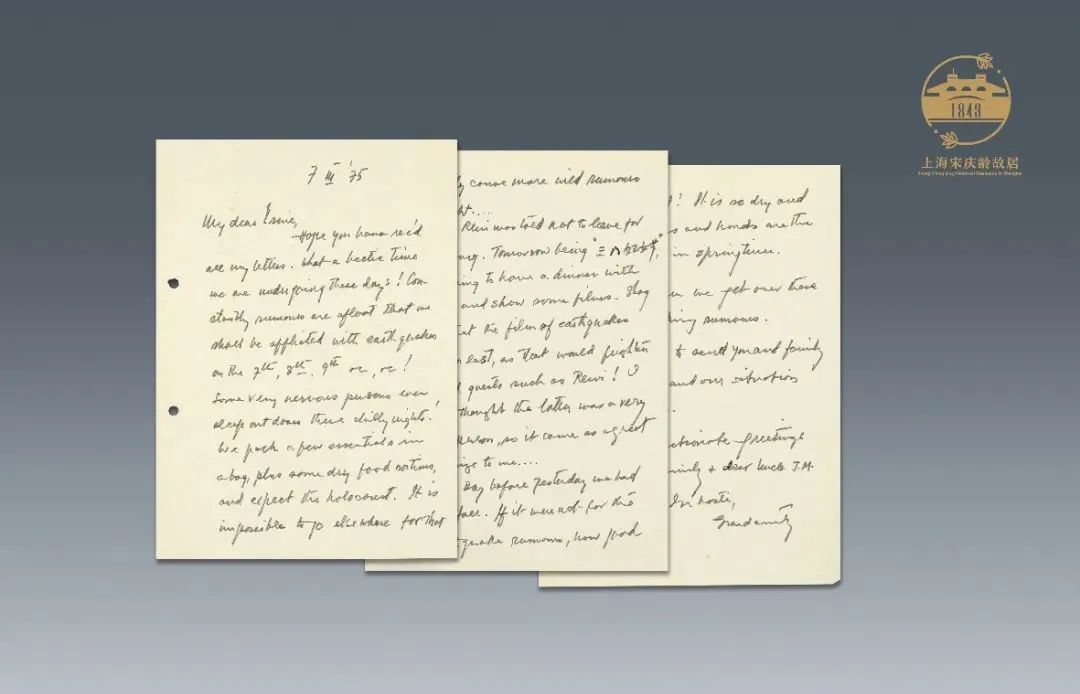 1843
上海宋庆龄故居
Soong Ching Ling Memorial Residence in Shanghai
7 III '75
My dear Ernie,
Hope you have rec'd
are my letters. What a hectic time
we are undergoing these days! Con-
stantly rumours are afloat that we
shall be afflicted with earthquakes
on the 7th, 8th, 9th oc, oc!
Some very nervous persons even
sleep out doors these chilly nights.
We pack a few essentials in
a bag, plus some dry food rations,
and expect the holocaust. It is
impossible to go elsewhere for that
y cause more wild rumours
ht....
Rewi was told not to leave for
Tomorrow being "三八妇女节,"
ing to have a dinner with
and show some films.
at the film of earthquakes
last, as that would frighten
d guests such as Rewi!
thought the latter was a very
person, so it came as a great
ise to me....
Day before yesterday we had
If it were not for the
quake rumours, how good
! It is so dry and
s and hands are the
in springtime.
en we get over these
ing rumours.
to send you and family
and our situation
ctionate greetings
mily & dear Uncle J.M.
In haste,